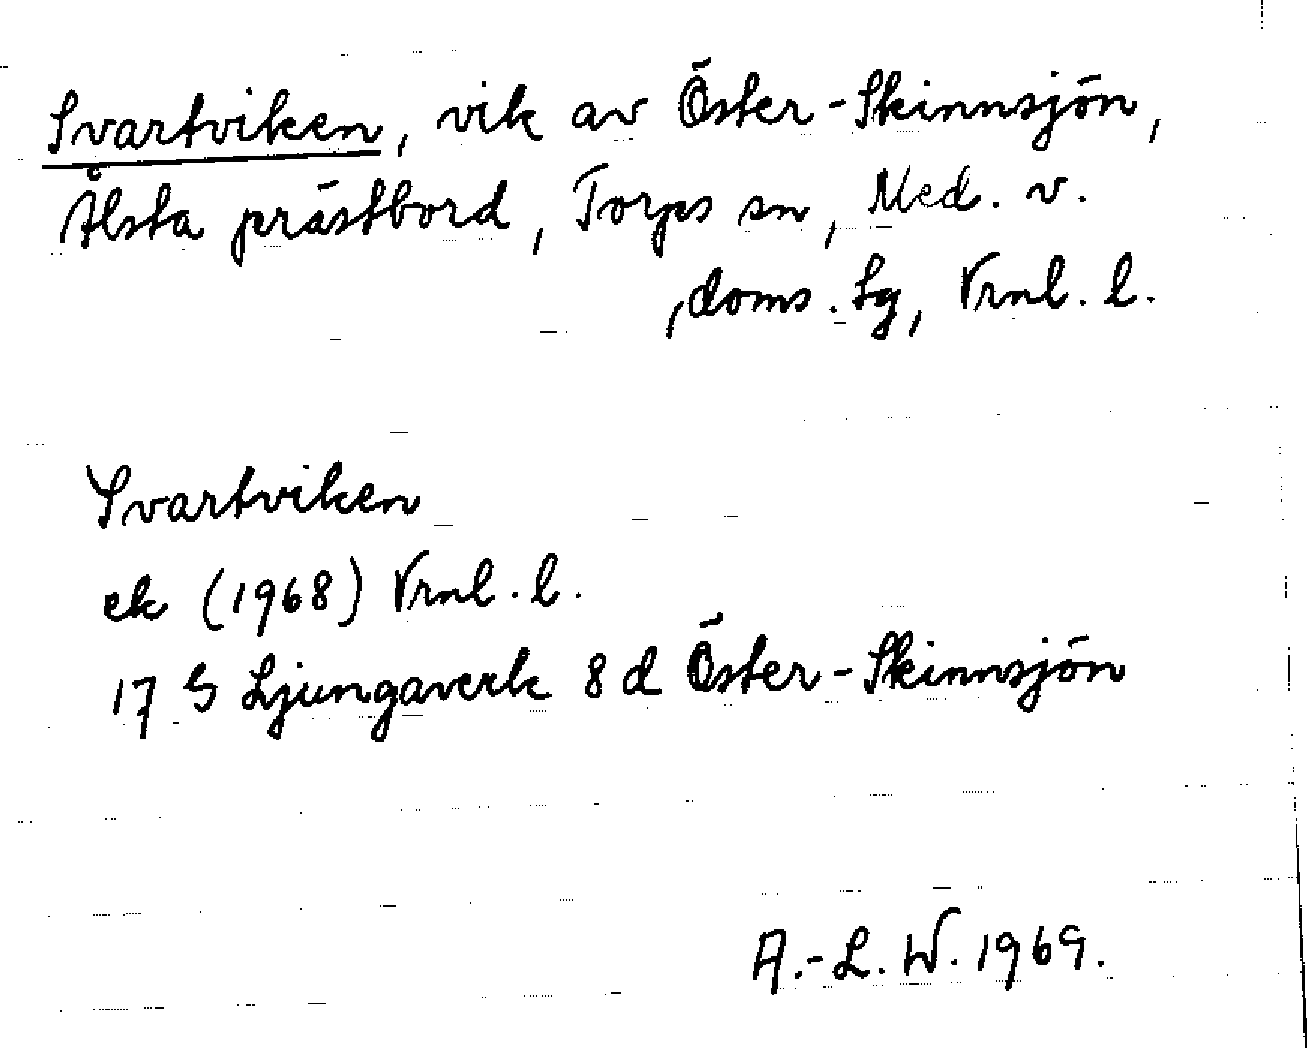 Svartviken, vik av Öster-Skinnsjön,
Ålsta prästbord, Torps sn, Med. v.
, doms. sg, Vrnl. l.
Svartviken
ek (1968) Vrnl. l.
17 G Ljungaverk 8 d Öster-Skinnsjön
A.-L. W. 1969.